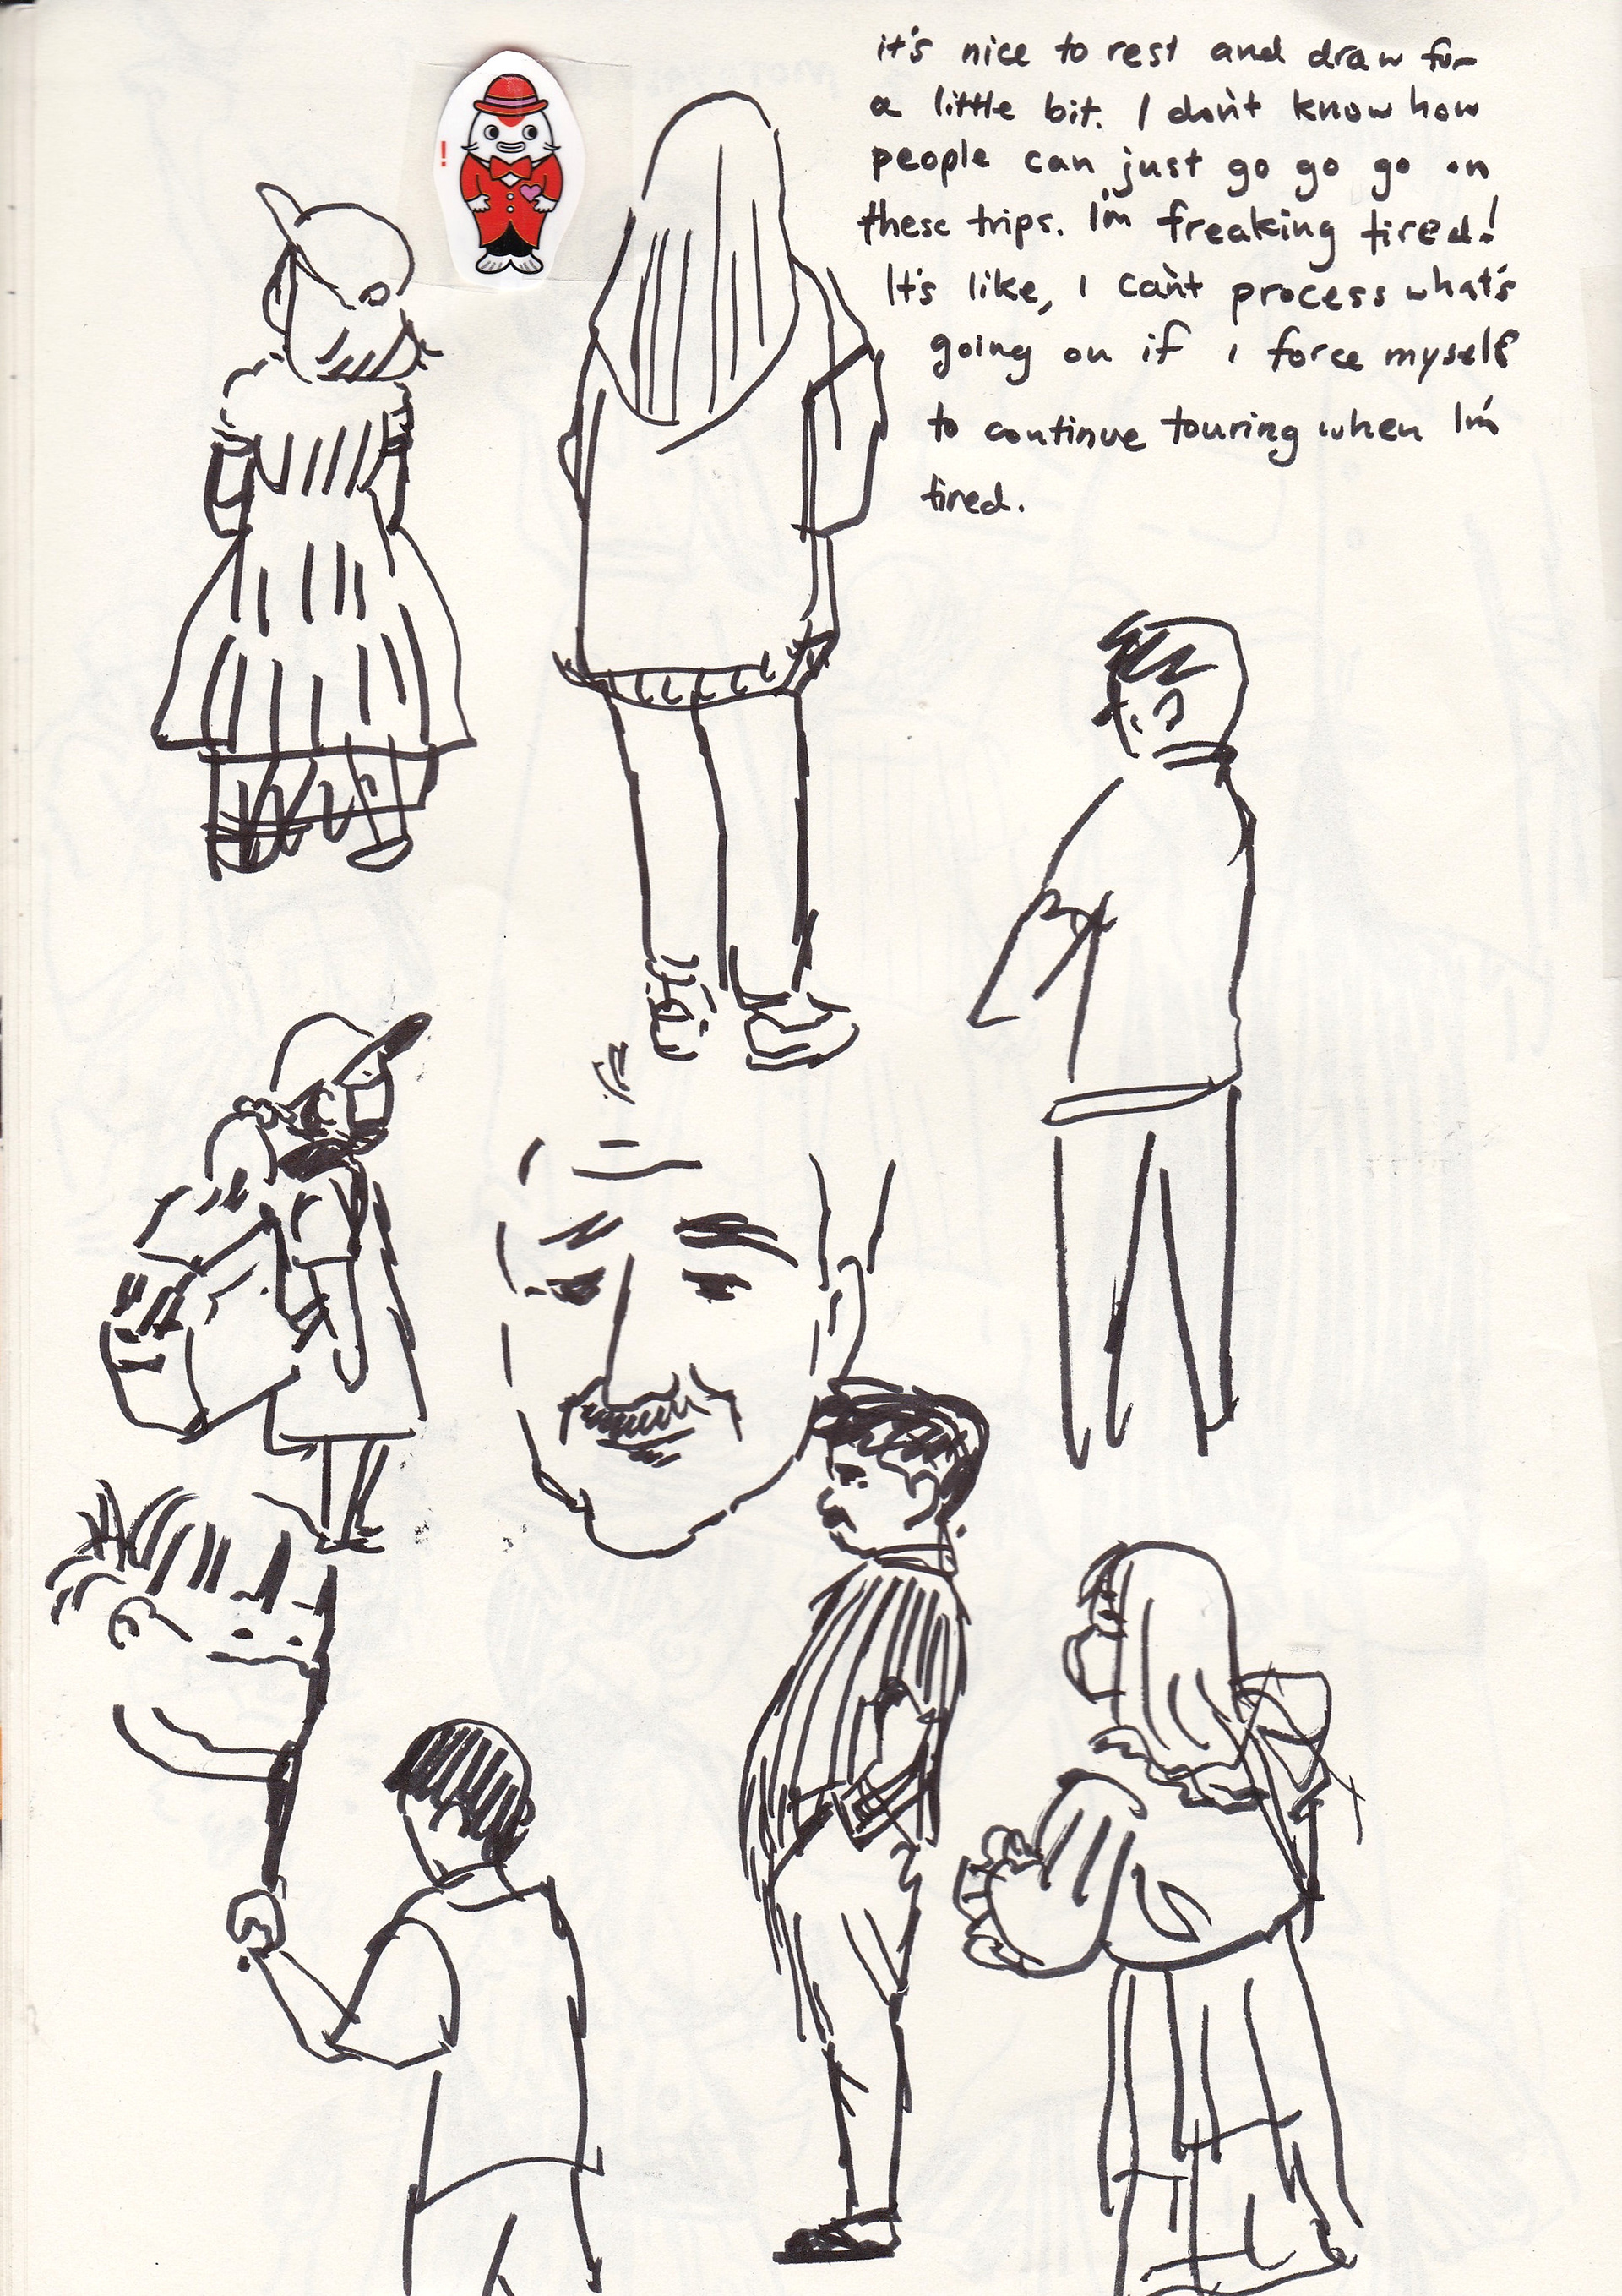 !
it's nice to rest and draw for
a little bit. I don't know how
people can just go go go on
these trips. I'm freaking tired!
It's like, I can't process what's
going on if I force myself
to continue touring when I'm
tired.